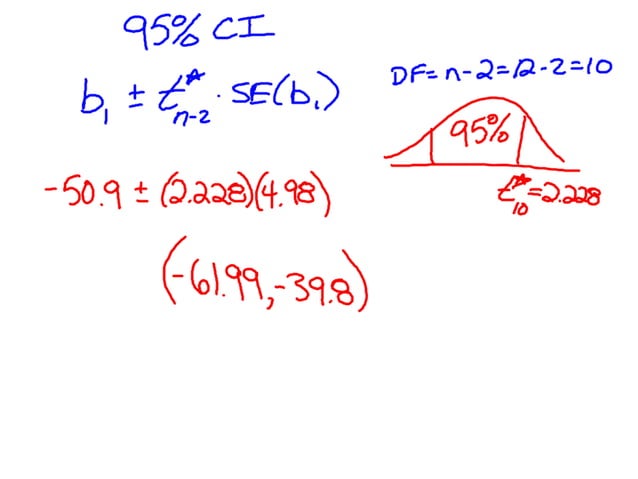 95% CI
b₁ ± t*ₙ₋₂ · SE(b₁)
DF = n-2 = 12-2 = 10
95%
t*₁₀ = 2.228
-50.9 ± (2.228)(4.98)
(-61.99, -39.8)